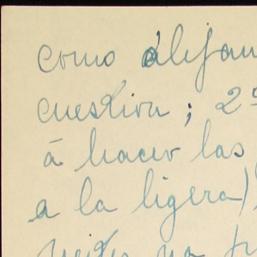 como alejan
cuestion; 2º
á hacer las
a la ligera)